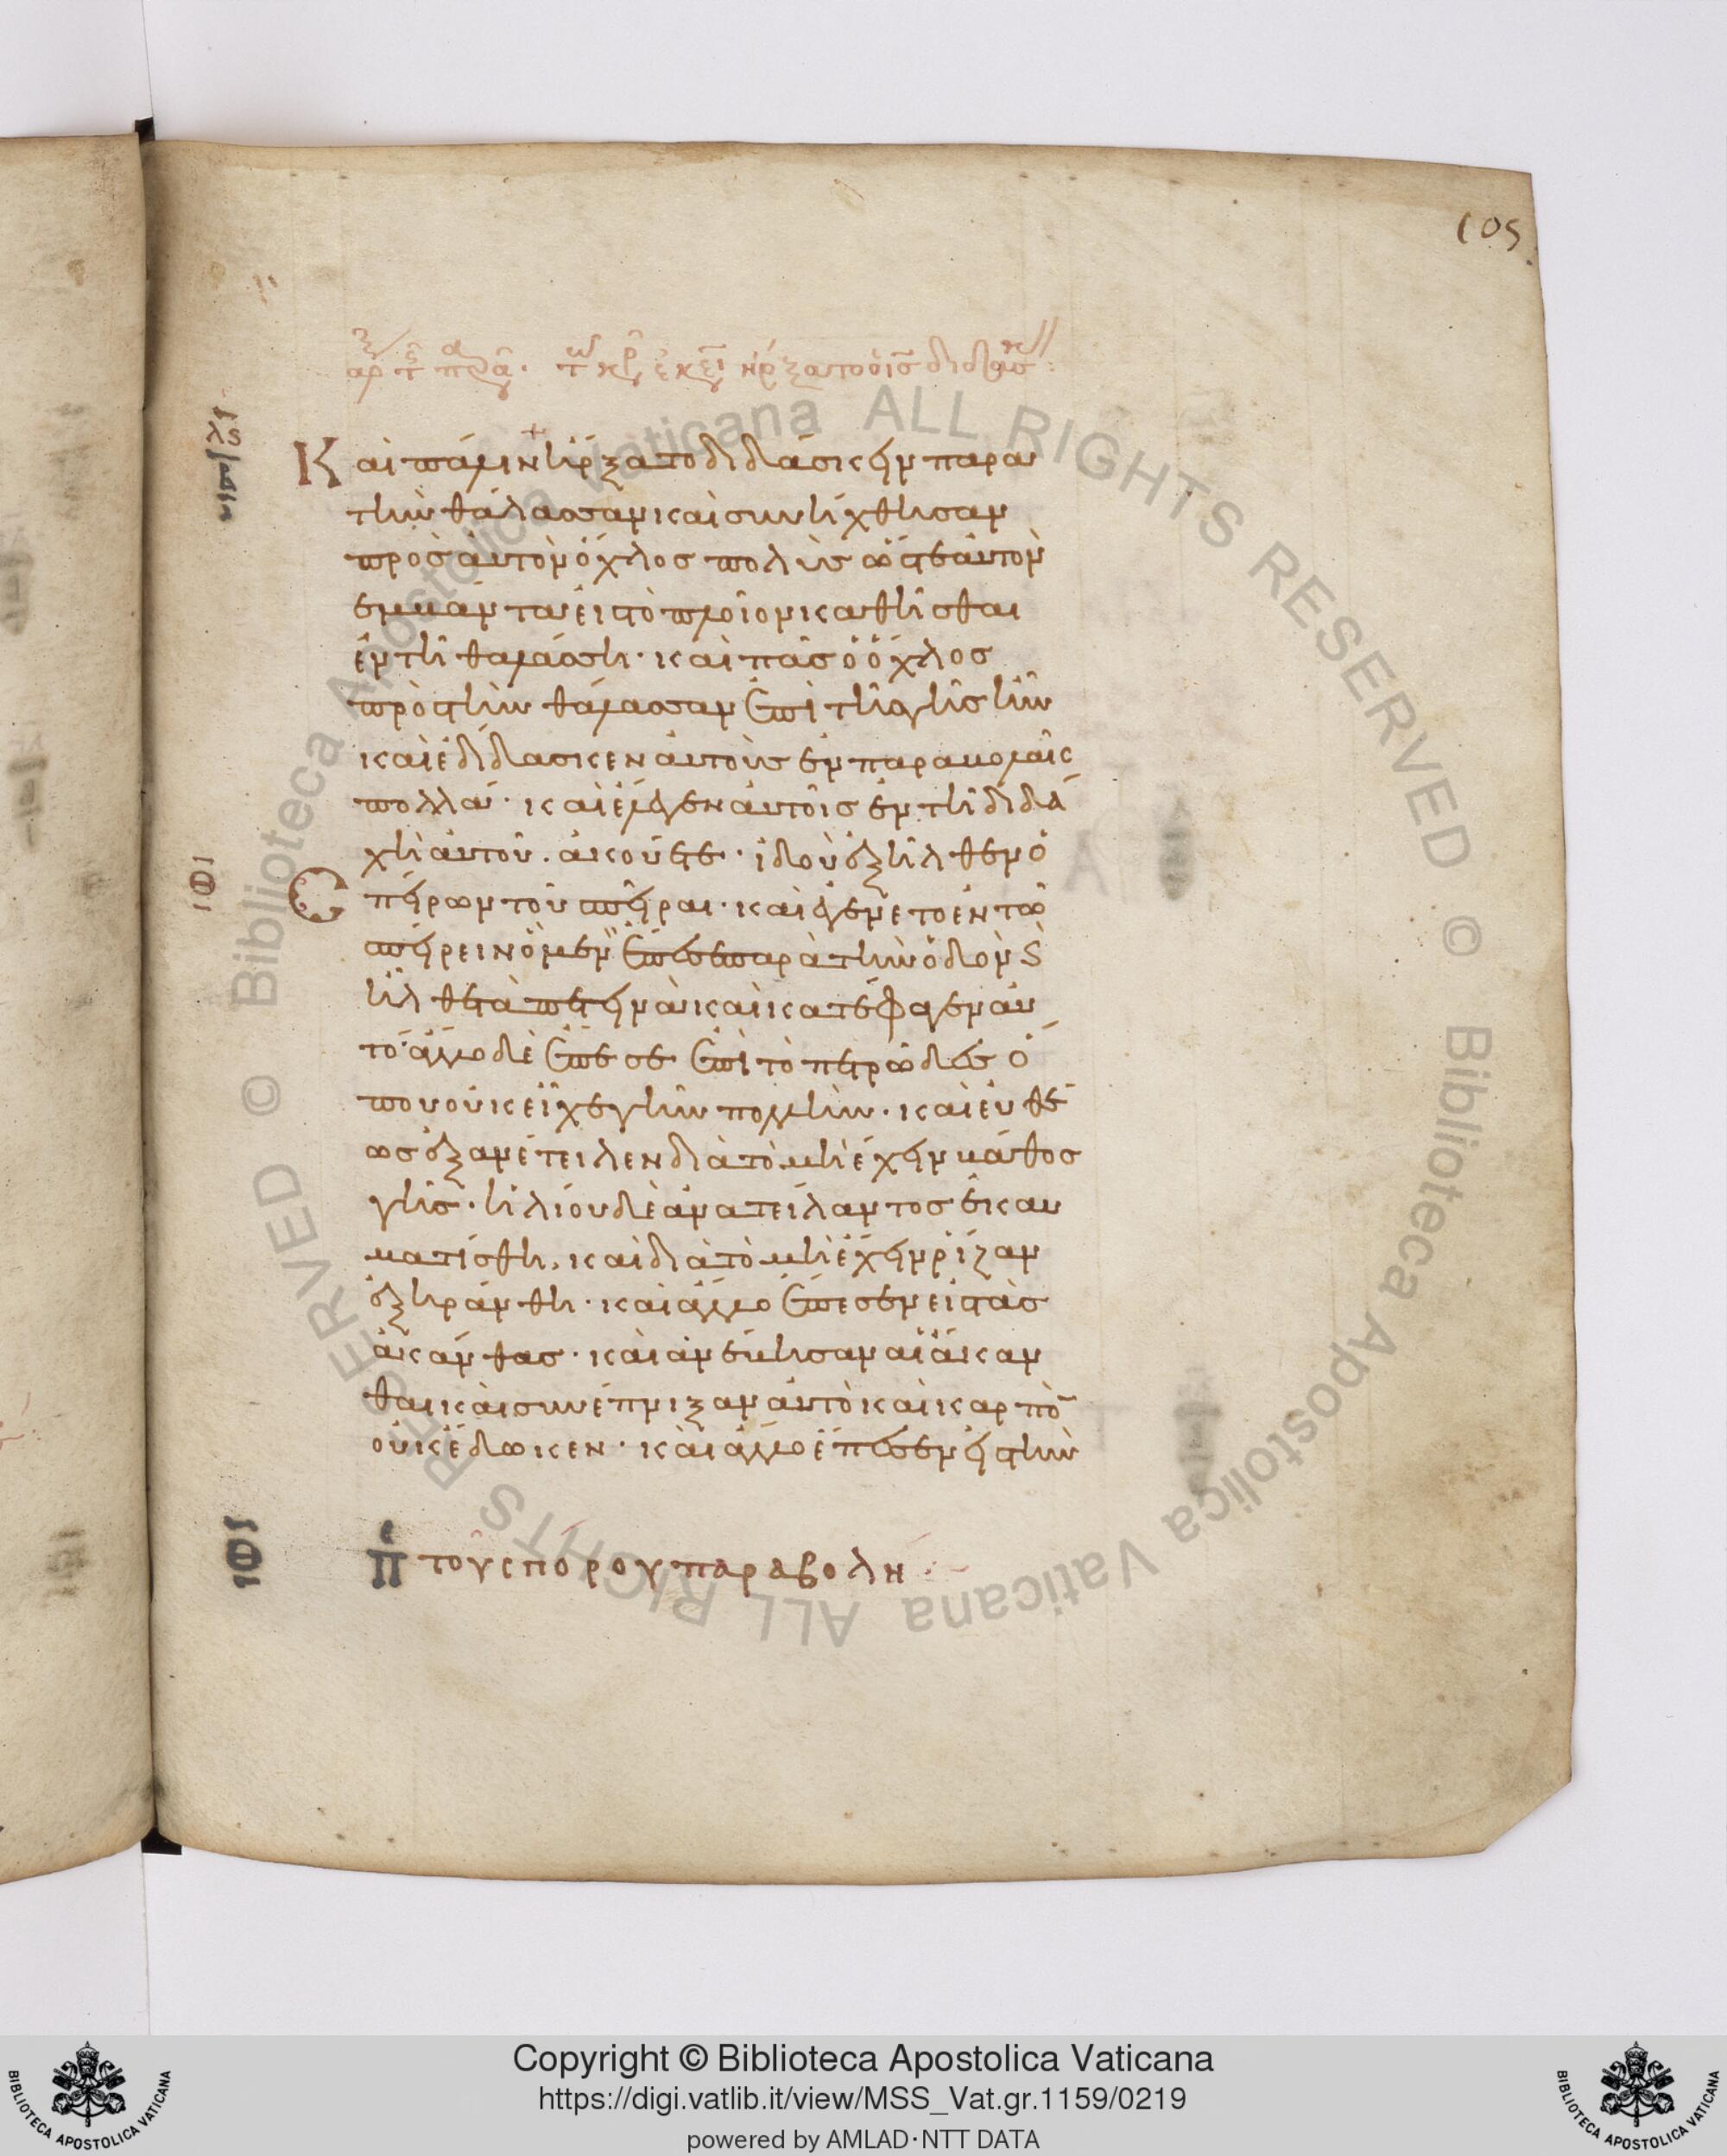 105
Και πάλιν ἤρξατο διδάσκειν παρὰ
τὴν θάλασσαν καὶ συνήχθησαν
πρὸς αὐτὸν ὄχλος πολὺς ὥστε αὐτὸν
ἐμβάντα εἰς τὸ πλοῖον καθῆσθαι
ἐν τῆ θαλάσση · καὶ πᾶς ὁ ὄχλος
πρὸς τὴν θάλασσαν ἐπὶ τῆς γῆς ἦν
καὶ ἐδίδασκεν αὐτοὺς ἐν παραβολαῖς
πολλά · καὶ ἔλεγεν αὐτοῖς ἐν τῆ διδα
χῆ αὐτοῦ · ἀκούετε · ἰδοὺ ἐξῆλθεν ὁ
σπείρων τοῦ σπεῖραι · καὶ ἐγένετο ἐν τῶ
σπείρειν ὃ μὲν ἔπεσε παρὰ τὴν ὁδὸν ϗ
ἦλθε τὰ πετεινὰ καὶ κατέφαγεν αὐ
τό · ἄλλο δὲ ἔπεσε ἐπὶ τὸ πετρῶδες ὅ
που οὐκ εἶχε γῆν πολλὴν · καὶ εὐθέ
ως ἐξανέτειλεν διὰ τὸ μὴ ἔχειν βάθος
γῆς · ἡλίου δὲ ἀνατείλαντος ἐκαυ
ματίσθη · καὶ διὰ τὸ μὴ ἔχειν ῥίζαν
ἐξηράνθη · καὶ ἄλλο ἔπεσεν εἰς τὰς
ἀκάνθας · καὶ ἀνέβησαν αἱ ἄκαν
θαι καὶ συνέπνιξαν αὐτὸ καὶ καρπὸ̅
οὐκ ἔδωκεν · καὶ ἄλλο ἔπεσεν εἰς τὴν
τοῦ σπόρου παραβολή
Copyright © Biblioteca Apostolica Vaticana
https://digi.vatlib.it/view/MSS_Vat.gr.1159/0219
powered by AMLAD·NTT DATA
BIBLIOTECA APOSTOLICA VATICANA
BIBLIOTECA APOSTOLICA VATICANA
© Biblioteca Apostolica Vaticana ALL RIGHTS RESERVED © Biblioteca Apostolica Vaticana ALL RIGHTS RESERVED